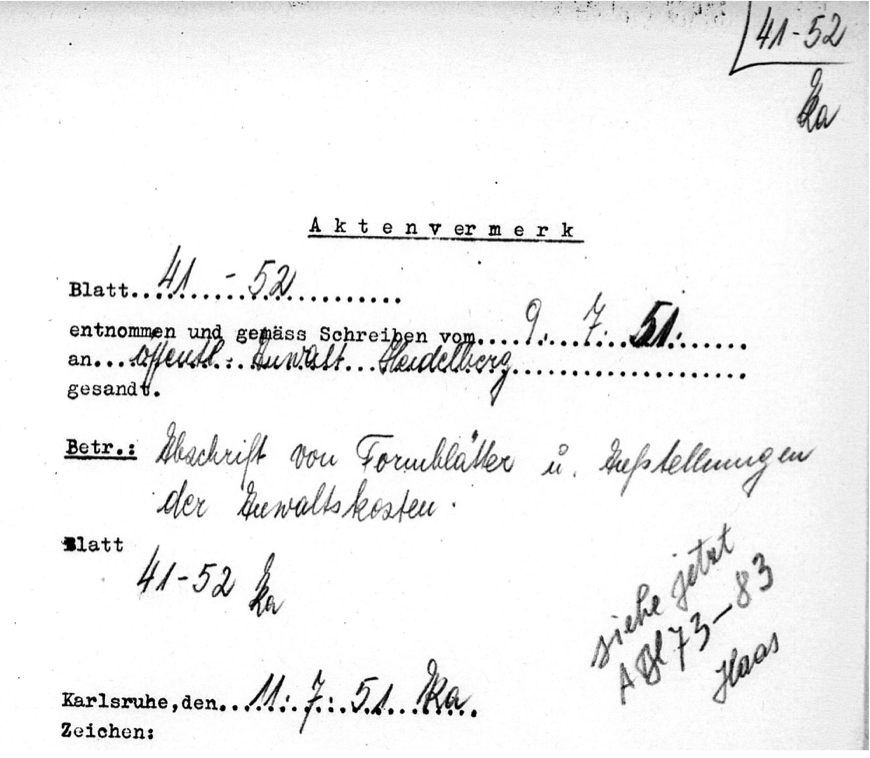 41-52
Ka
Aktenvermerk
Blatt..41 - 52..........
entnommen und gemäss Schreiben vom....9. 7. 51.......
an...öffentl. Anwalt Heidelberg.......................
gesandt.
Betr.: Abschrift von Formblätter u. Aufstellungen
der Anwaltskosten.
Blatt
41-52 Ka
siehe jetzt
ABl 73-83
Haas
Karlsruhe,den..11. 7. 51... Ka..
Zeichen: